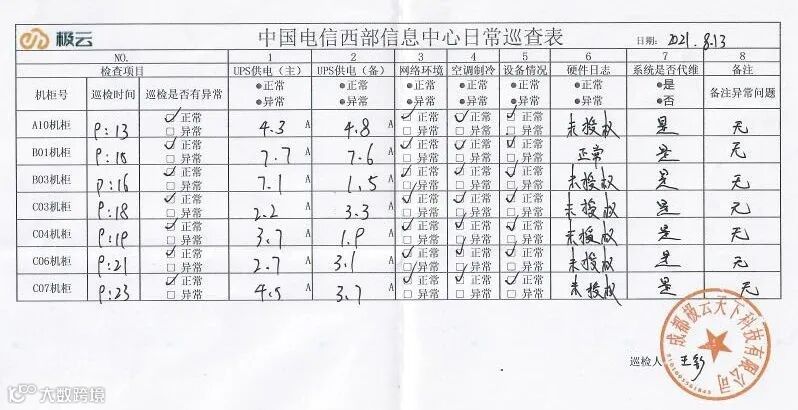 极云 中国电信西部信息中心日常巡查表 日期: 2021.8.13
NO. 1 2 3 4 5 6 7 8
检查项目 UPS供电(主) UPS供电(备) 网络环境 空调制冷 设备情况 硬件日志 系统是否代维 备注
机柜号 巡检时间 巡检是否有异常 ●正常 ●异常 ●正常 ●异常 ●正常 ●异常 ●正常 ●异常 ●正常 ●异常 ●正常 ●异常 ●是 ●否 备注异常问题
A10机柜 9:13 ☑正常 □异常 4.3 A 4.8 A ☑正常 □异常 ☑正常 □异常 ☑正常 □异常 未授权 是 无
B01机柜 ☑正常 □异常 7.7 A 7.6 A ☑正常 □异常 ☑正常 □异常 ☑正常 □异常 正常 是 无
B03机柜 9:16 ☑正常 □异常 7.1 A 1.5 A ☑正常 □异常 ☑正常 □异常 ☑正常 □异常 未授权 是 无
C03机柜 9:18 ☑正常 □异常 2.2 A 3.3 A ☑正常 □异常 ☑正常 □异常 ☑正常 □异常 未授权 是 无
C04机柜 9:19 ☑正常 □异常 3.7 A 1.9 A ☑正常 □异常 ☑正常 □异常 ☑正常 □异常 未授权 是 无
C06机柜 9:21 ☑正常 □异常 2.7 A 3.1 A ☑正常 □异常 ☑正常 □异常 ☑正常 □异常 未授权 是 无
C07机柜 9:23 ☑正常 □异常 4.5 A 3.7 A ☑正常 □异常 ☑正常 □异常 ☑正常 □异常 未授权 是 无
成都极云天下科技有限公司
巡检人: 王彰
大数跨境